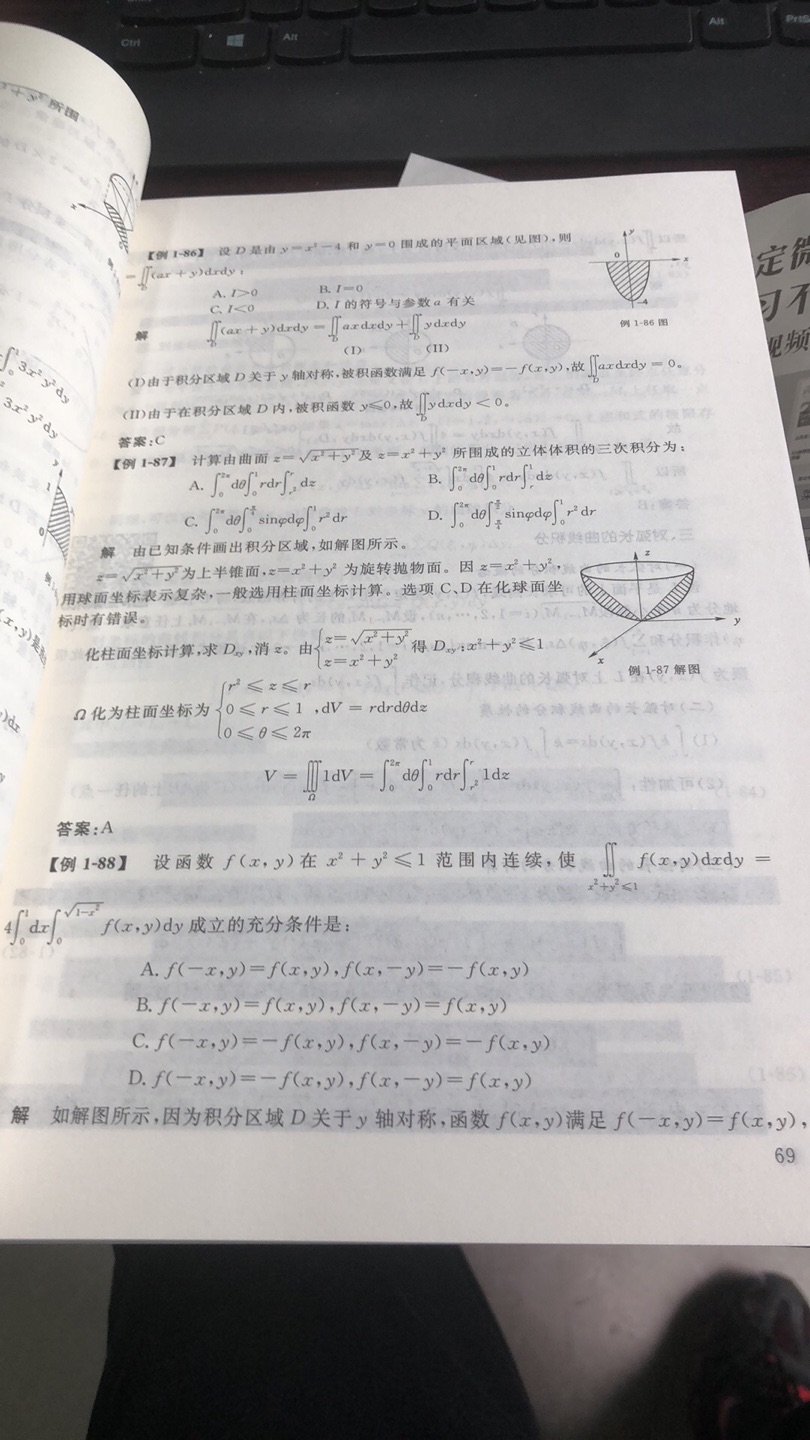 Ctrl
上半锥
Alt
Alt
PrtSc
所围
【例 1-86】 设 D 是由 y=x²-4 和 y=0 围成的平面区域(见图),则
=∬_D(ax+y)dxdy:
A. I>0 B. I=0
C. I<0 D. I 的符号与参数 a 有关
例 1-86 图
y
0
x
-4
解 ∬_D(ax+y)dxdy=∬_D axdxdy+∬_D ydxdy
(I) (II)
(I)由于积分区域 D 关于 y 轴对称,被积函数满足 f(-x,y)=-f(x,y),故∬_D axdxdy=0。
(II)由于在积分区域 D 内,被积函数 y≤0,故∬_D ydxdy<0。
答案:C
【例 1-87】 计算由曲面 z=√(x²+y²)及 z=x²+y² 所围成的立体体积的三次积分为:
A. ∫₀^{2π}dθ∫₀^1 rdr∫_{r²}^r dz B. ∫₀^{2π}dθ∫₀^1 rdr∫_r^1 dz
C. ∫₀^{2π}dθ∫₀^{π/4} sinφdφ∫₀^1 r²dr D. ∫₀^{2π}dθ∫_{π/4}^{π/2} sinφdφ∫₀^1 r²dr
解 由已知条件画出积分区域,如解图所示。
z=√(x²+y²)为上半锥面,z=x²+y² 为旋转抛物面。因 z=x²+y²,
用球面坐标表示复杂,一般选用柱面坐标计算。选项 C、D 在化球面坐
标时有错误。
z
y
x
例 1-87 解图
化柱面坐标计算,求 D_xy,消 z。由{z=√(x²+y²) z=x²+y² 得 D_xy:x²+y²≤1
Ω 化为柱面坐标为{r²≤z≤r 0≤r≤1 0≤θ≤2π ,dV=rdrdθdz
V=∭_Ω 1dV=∫₀^{2π}dθ∫₀^1 rdr∫_{r²}^r 1dz
答案:A
【例 1-88】 设函数 f(x,y)在 x²+y²≤1 范围内连续,使 ∬_{x²+y²≤1} f(x,y)dxdy=
4∫₀^1 dx∫₀^{√(1-x²)} f(x,y)dy 成立的充分条件是:
A. f(-x,y)=f(x,y),f(x,-y)=-f(x,y)
B. f(-x,y)=f(x,y),f(x,-y)=f(x,y)
C. f(-x,y)=-f(x,y),f(x,-y)=-f(x,y)
D. f(-x,y)=-f(x,y),f(x,-y)=f(x,y)
解 如解图所示,因为积分区域 D 关于 y 轴对称,函数 f(x,y)满足 f(-x,y)=f(x,y),
69
3x²y²dy
3x²y²dy
定微
习不
视频